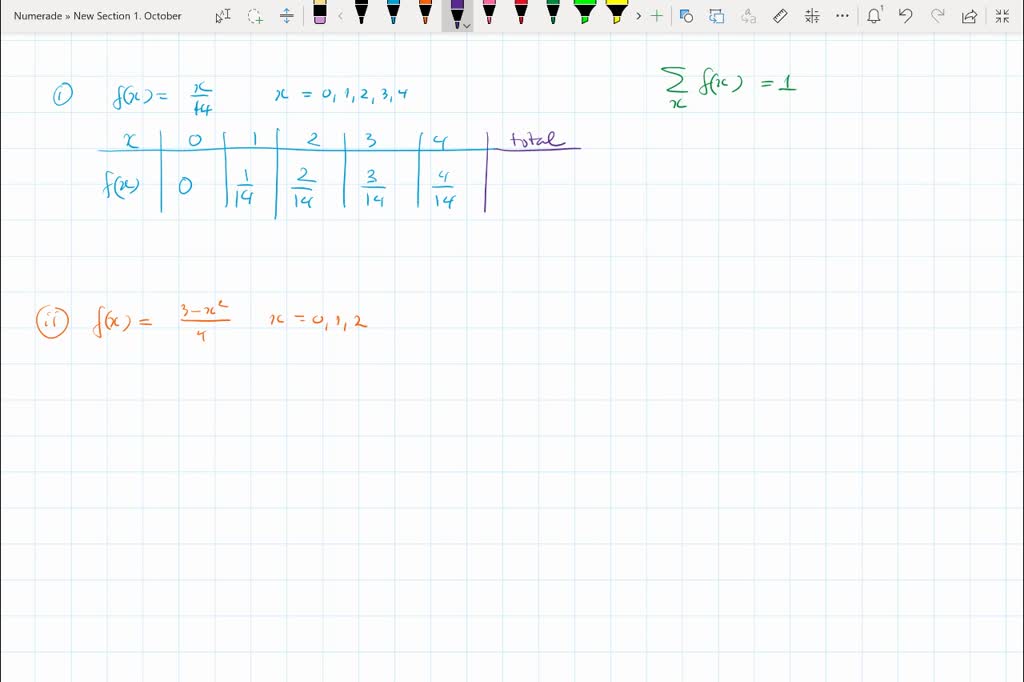 Numerade » New Section 1. October
i f(x) = x/14 x = 0, 1, 2, 3, 4
∑x f(x) = 1
x 0 1 2 3 4 total
f(x) 0 1/14 2/14 3/14 4/14
ii f(x) = 3-x²/4 x = 0, 1, 2